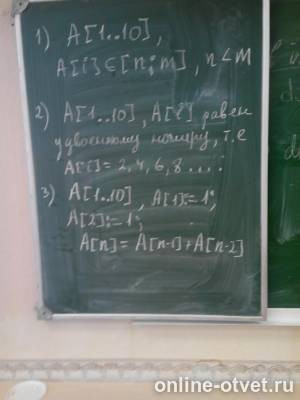 1) A[1..10],
A[i]∈[n;m], n<m
2) A[1..10], A[i] равен
удвоенному номеру, т.е
A[i]=2,4,6,8....
3) A[1..10], A[1]:=1;
A[2]:=1;
A[n]=A[n-1]+A[n-2]
online-otvet.ru